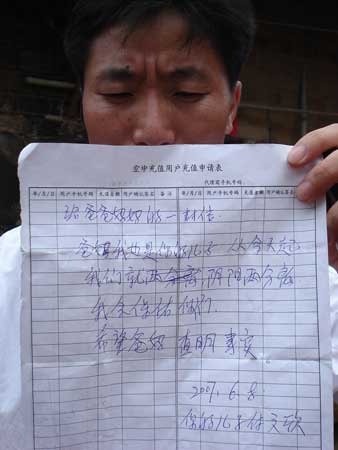 空中充值用户充值申请表
代理商手机号码:
年/月/日 用户手机号码 充值金额 用户确认签名 备注 年/月/日 用户手机号码 充值金额 用户确认签名
给爸爸妈妈的一封信
爸妈我也是你们的儿子 从今天起
我们就两分离,阴阳两分离
我会保佑你们.
希望爸妈 查明事实.
2007.6.8
你的儿子